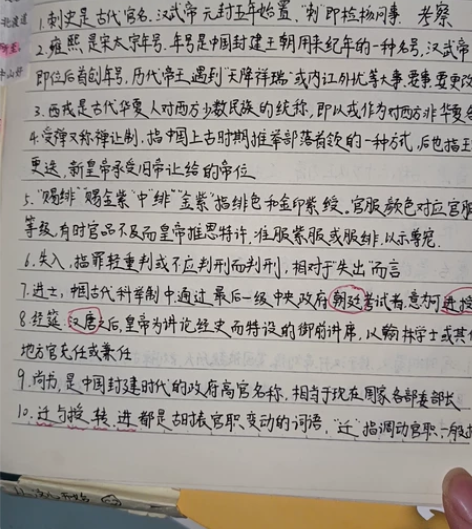 1.刺史是古代官名。汉武帝元封五年始置、"刺"即检核问事. 考察
2.雍熙是宋太宗年号.年号是中国封建王朝用来纪年的一种名号,汉武帝
即位后首创年号,历代帝王遇到"天降祥瑞"或内讧外忧等大事、要事,要更改
3.西戎是古代华夏人对西方少数民族的统称,即以戎作为对西方非华夏
4.受禅又称禅让制.指中国上古时期推举部落首领的一种方式,后也指王
更迭,新皇帝承受旧帝让给的帝位
5."赐绯"赐金紫"中"绯""金紫"指绯色和金印紫绶。官服颜色对应官服
等级,有时官品不及而皇帝推恩特许,准服紫服或服绯.以示尊宠.
6.失入,指罪轻重判或不应判刑而判刑,相对于"失出"而言
7.进士,中国古代科举制中通过最后一级中央政府朝廷考试者,意为可进授
8.经筵:汉唐以后,皇帝为讲论经史而特设的御前讲席,以翰林学士或其他
地方官充任或兼任
9.尚书,是中国封建时代的政府高官名称,相当于现在国家各部委部长
10.迁与授、转、进都是古时表官职变动的词语,"迁"指调动官职,一般